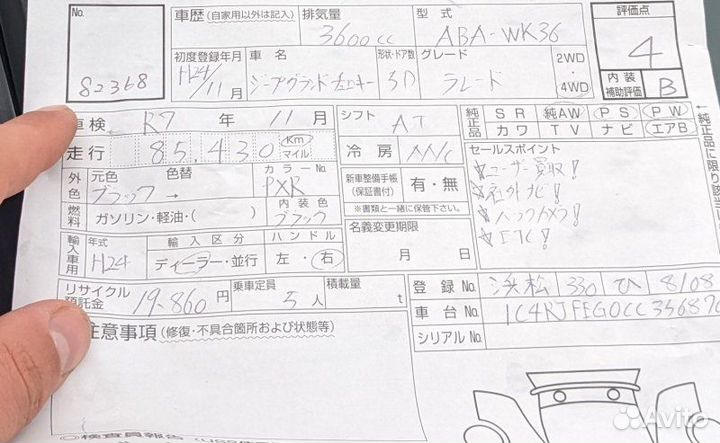 No. 車歴 (自家用以外は記入) 排気量 型式 評価点
3600cc ABA-WK36 4
82368
初度登録年月 車名 形状・ドア数 グレード 2WD・4WD
H24/11月 ジープグランドチェロキー 5D ラレード
内装補助評価 B
車検 R7年 11月 シフト AT 純正品 SR 純AW PS PW
走行 85,430 Km マイル 冷房 AA/c カワ TV ナビ エアB
外色 元色 色替 カラーNo. 新車整備手帳(保証書付) 有・無 セールスポイント
ブラック → PXR ※書類と一緒に保管下さい。 ★ユーザー買取!
燃料 ガソリン・軽油・( ) 内装色 ブラック ★社外ナビ!
名義変更期限 ★バックカメラ!
輸入車用 年式 輸入区分 ハンドル 月 日 ★ETC!
H24 ディーラー・並行 左・右
リサイクル預託金 19,860円 乗車定員 5人 積載量 t 登録No. 浜松 330 ひ 8108
車台No. 1C4RJFEG0CC35687
注意事項 (修復・不具合箇所および状態等) シリアルNo.
◎検査員報告
Avito